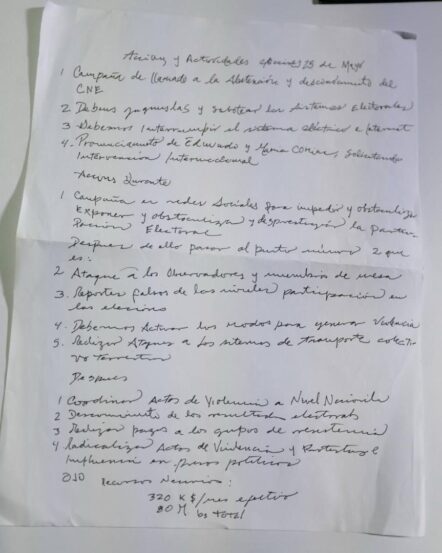 Acciones y Actividades 25 de Mayo
1 Campaña de llamado a la Abstención y desconocimiento del
CNE
2 Debemos y sabotear los sistemas Electorales
3 Debemos Interrumpir el sistema eléctrico e Internet
4. Pronunciamiento de Edmundo y Maria Corina, solicitando
Intervención Internacional
Acciones Durante
1 Campaña en redes Sociales para impedir y obstaculizar
Exponer y obstaculizar y desprestigiar la partici-
pación Electoral
Despues de ello pasar al punto número 2 que
es:
2 Ataque a los Observadores y miembros de mesa
3. Reportes falsos de los niveles participación en
las elecciones
4. Debemos Activar los nodos para generar Violencia
5. Realizar Ataques a los sistemas de transporte colecti-
vo terrestre
Despues
1 Coordinar Actos de Violencia a Nivel Nacional
2 Desconocimiento de los resultados electorales
3 Realizar pagos a los grupos de resistencia
4 radicalizar Actos de Violencia y Protestas e
Influencia en presos politicos
OJO recursos Necesarios:
320 K $/mes efectivo
80 M bs total